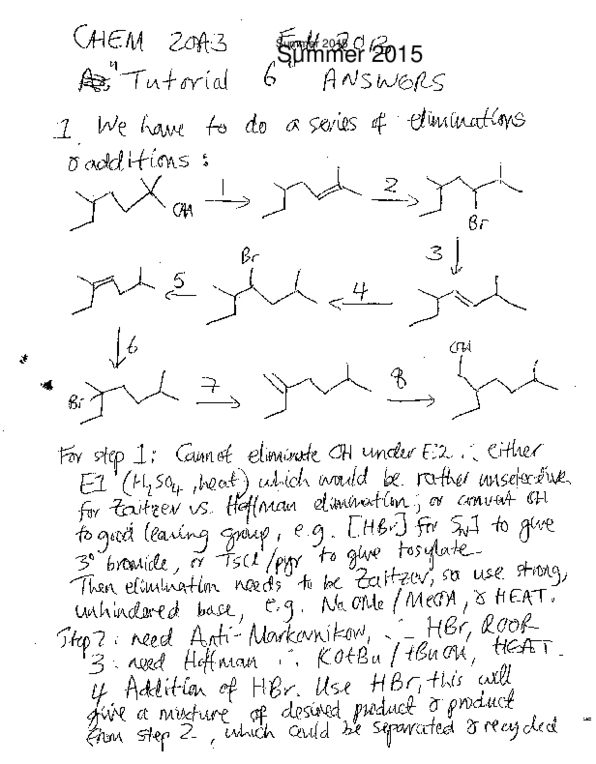 CHEM 20A3 Fall 2013
Summer 2015
Summer 2015
"Tutorial 6 ANSWERS
1. We have to do a series of eliminations
& additions :
OH 1 2 Br
3
Br
5 4
6
Br 7 8 OH
For step 1: Cannot eliminate OH under E2 ∴ either
E1 (H2SO4, heat) which would be rather unselective
for Zaitzev vs. Hoffman elimination; or convert OH
to good leaving group, e.g. [HBr] for SN1 to give
3° bromide, or TsCl/pyr to give tosylate.
Then elimination needs to be Zaitzev, so use strong,
unhindered base, e.g. NaOMe / MeOH, & HEAT.
Step 2: need Anti-Markovnikov, ∴ HBr, ROOR
3: need Hoffman ∴ KOtBu / tBuOH, HEAT.
4 Addition of HBr. Use HBr, this will
give a mixture of desired product & product
from step 2, which could be separated & recycled